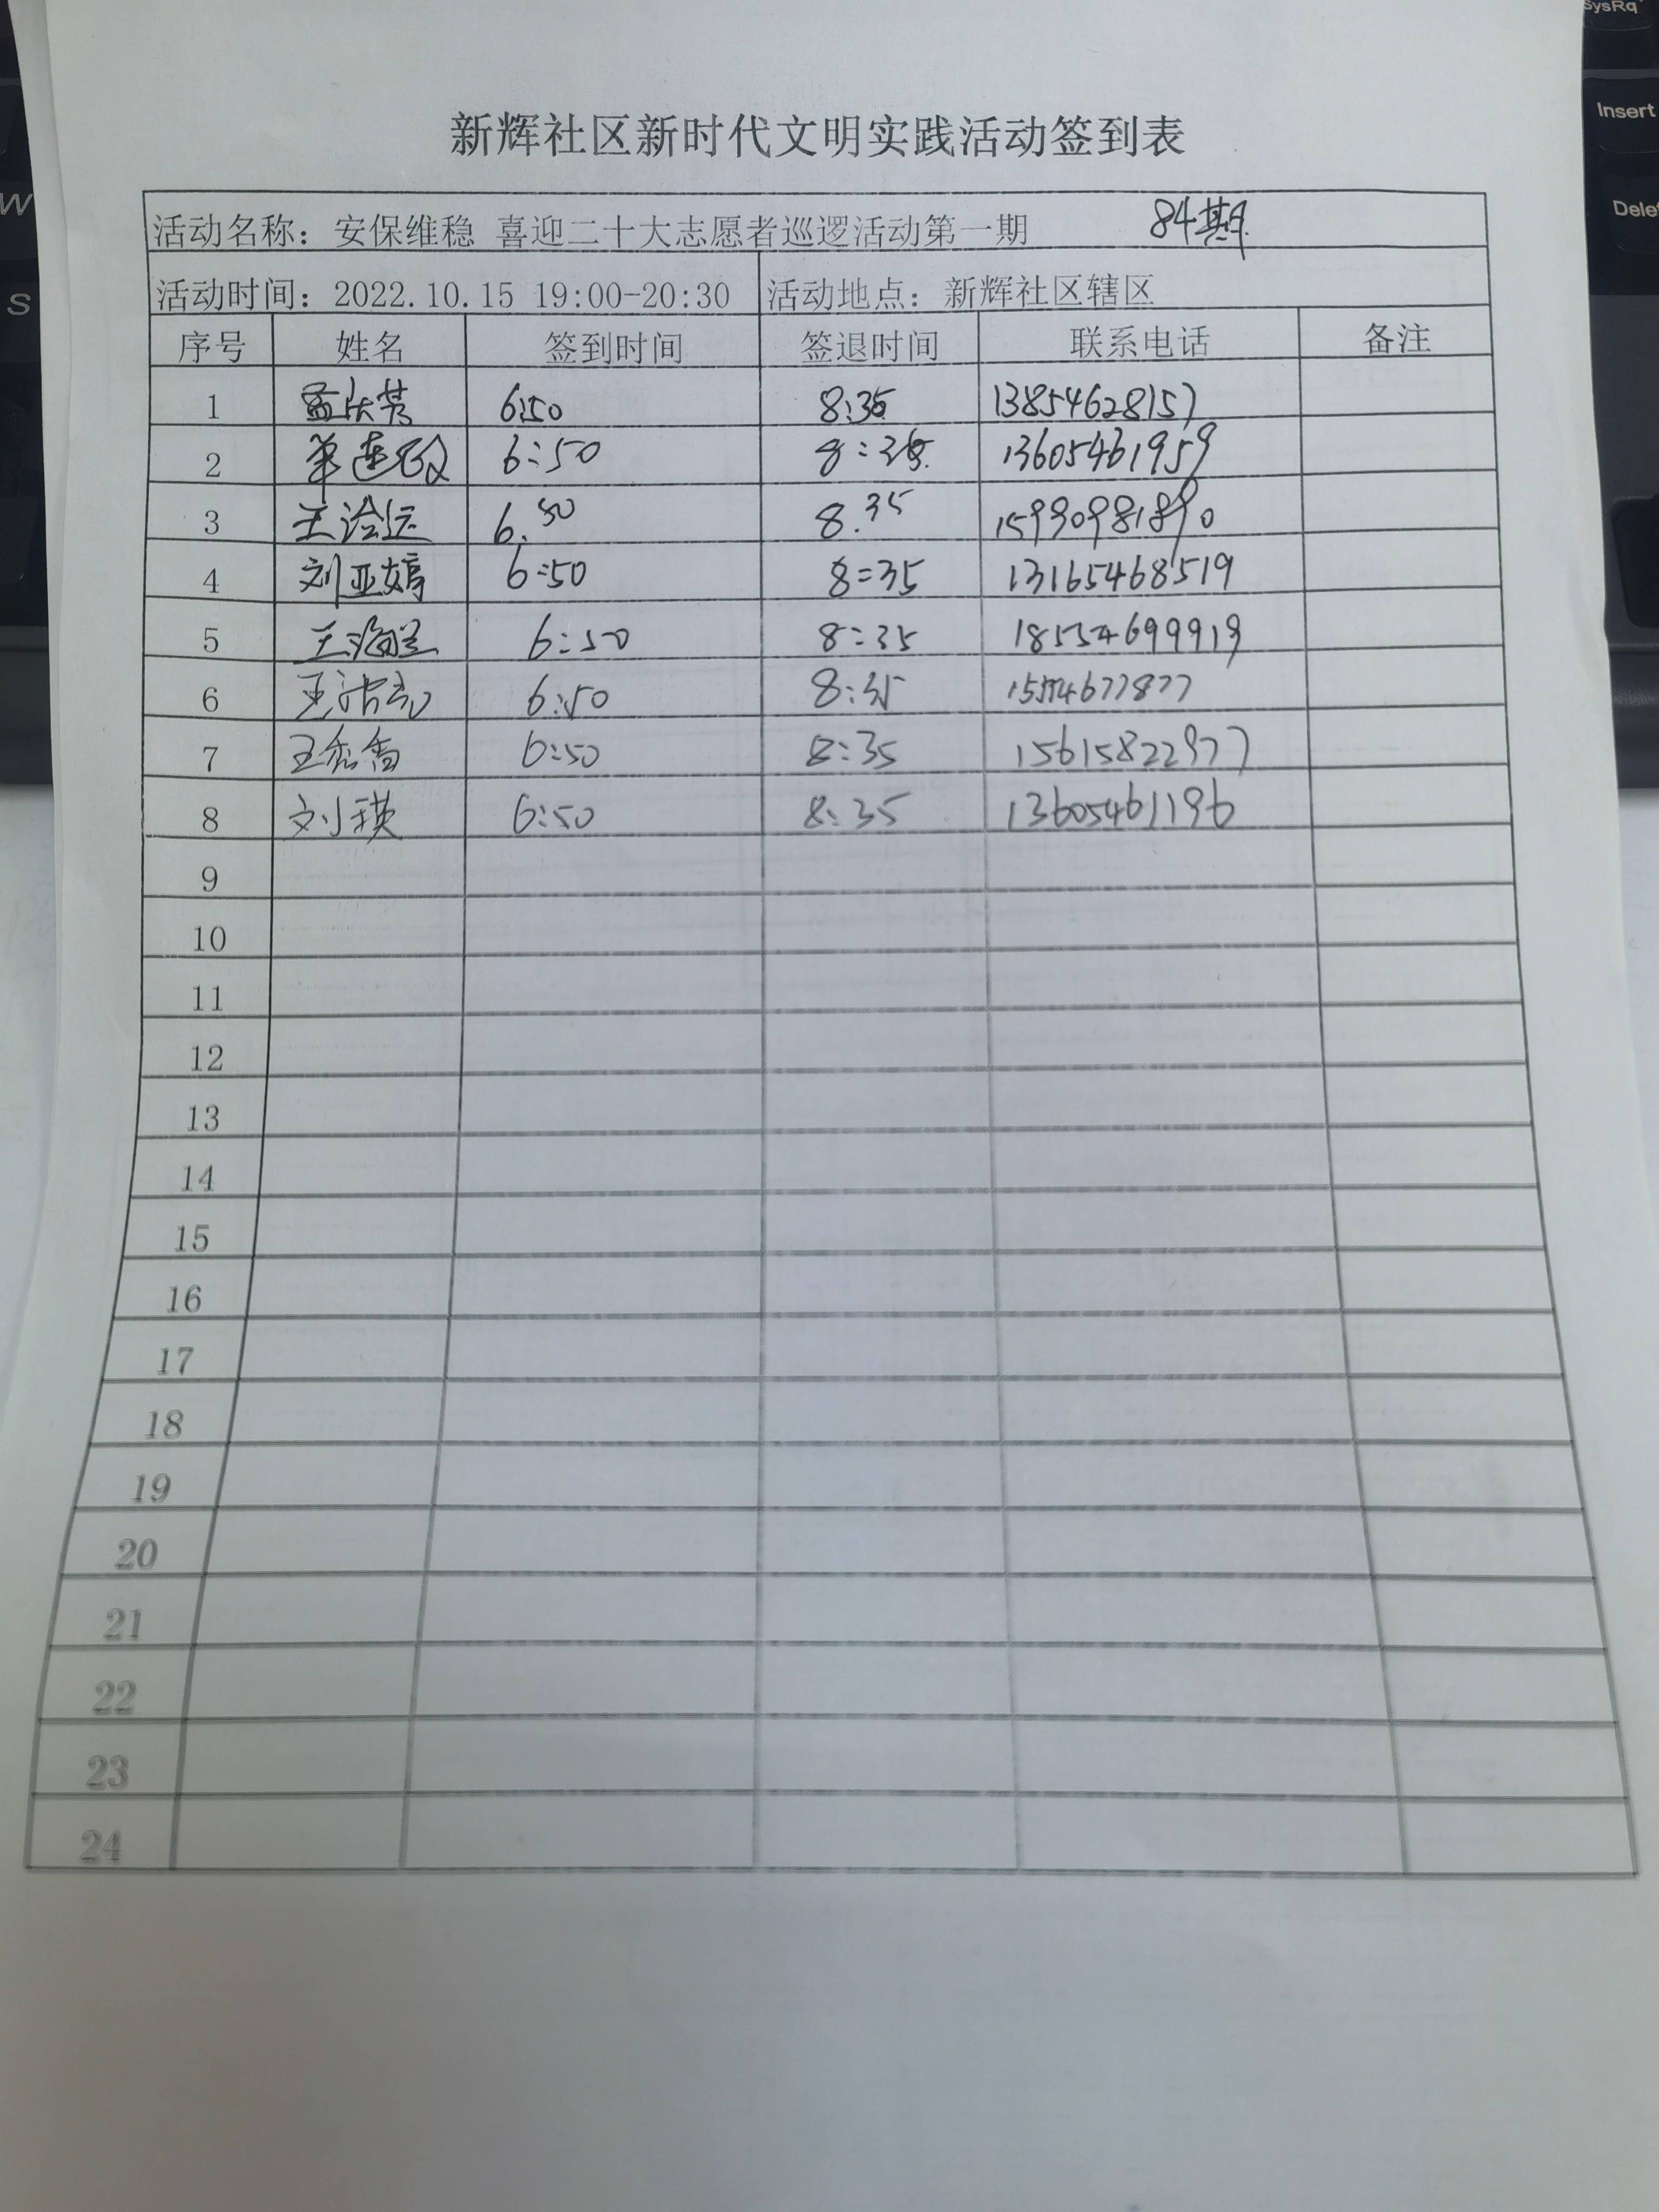 SysRq
Insert
Dele
W
S
新辉社区新时代文明实践活动签到表
活动名称：安保维稳 喜迎二十大志愿者巡逻活动第一期 84期
活动时间：2022.10.15 19:00-20:30 活动地点：新辉社区辖区
序号 姓名 签到时间 签退时间 联系电话 备注
1 孟庆芳 6:50 8:35 13854628157
2 单连政 6:50 8:35 13605461959
3 王洽运 6.50 8.35 15990981890
4 刘亚婷 6:50 8:35 13165468519
5 6:50 8:35 18554699919
6 6:50 8:35
7 王秀香 6:50 8:35 15615822977
8 刘瑛 6:50 8:35 13605461196
9
10
11
12
13
14
15
16
17
18
19
20
21
22
23
24